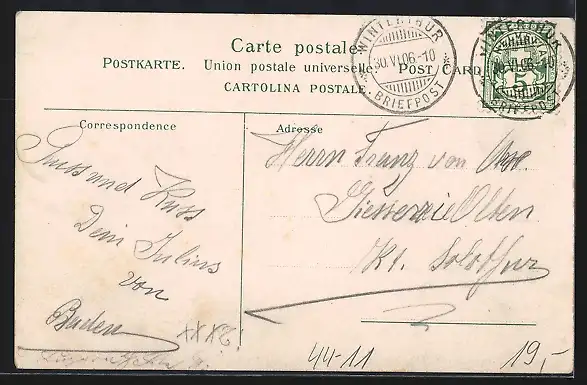 Carte postale.
POSTKARTE. Union postale universelle. POST CARD
CARTOLINA POSTALE.
WINTERTHUR
30.VI.06.-10
BRIEFPOST
WINTERTHUR
30.VI.06.-10
BRIEFPOST
Correspondence
Gruss und Kuss
Dein Julius
von
Baden
XXXX
Adresse
Herrn Franz von
Giesserei Olten
Kt. Solothur
44-11
19,-